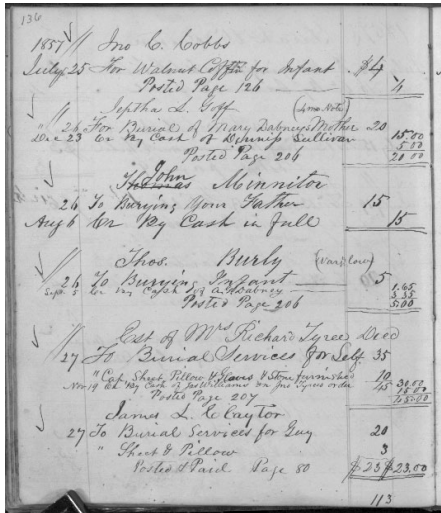 136
1857 // Jno C. Cobbs
July 25 For Walnut Coffin for Infant $4
Posted Page 126 4
// Jeptha L. Goff (4 mo Note)
" 26 For Burial of Mary Dabneys Mother 20 15.00
Dec 23 Cr By Cash of Dennis Sullivan 5.00
Posted Page 206 20 00
// John
Thomas Minnitor
26 To Burying Your Father 15
Aug 6 Cr By Cash in full 15
// Thos. Burly
26 To Burying Infant 5 1.65
Sept 5 Cr By Cash of Dabney 3.35
Posted Page 206 5.00
Est of Mrs Richard Tyree Decd
27 To Burial Services for Self 35
" Cap Sheet Pillow & Gloves & Stone furnished 10 30.00
Nov 19 Cr By Cash of Jas Williams on Jno Tyrees order 45 15.00
Posted Page 207 45.00
James L. Claytor
27 To Burial Services for Guy 20
" Sheet & Pillow 3
Posted & Paid Page 80 $23 $23.00
113